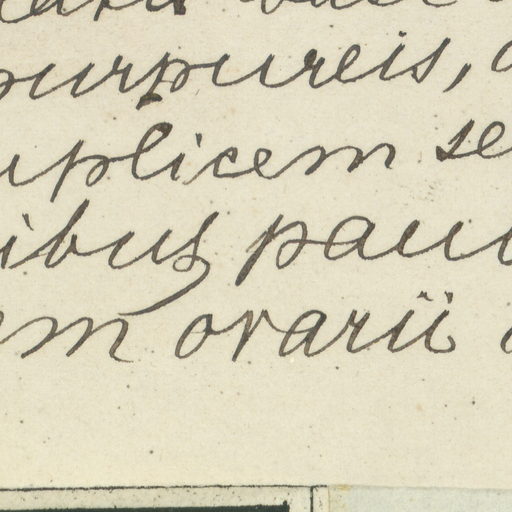 purpureis,
uplicem se
ibus pau
em ovarii